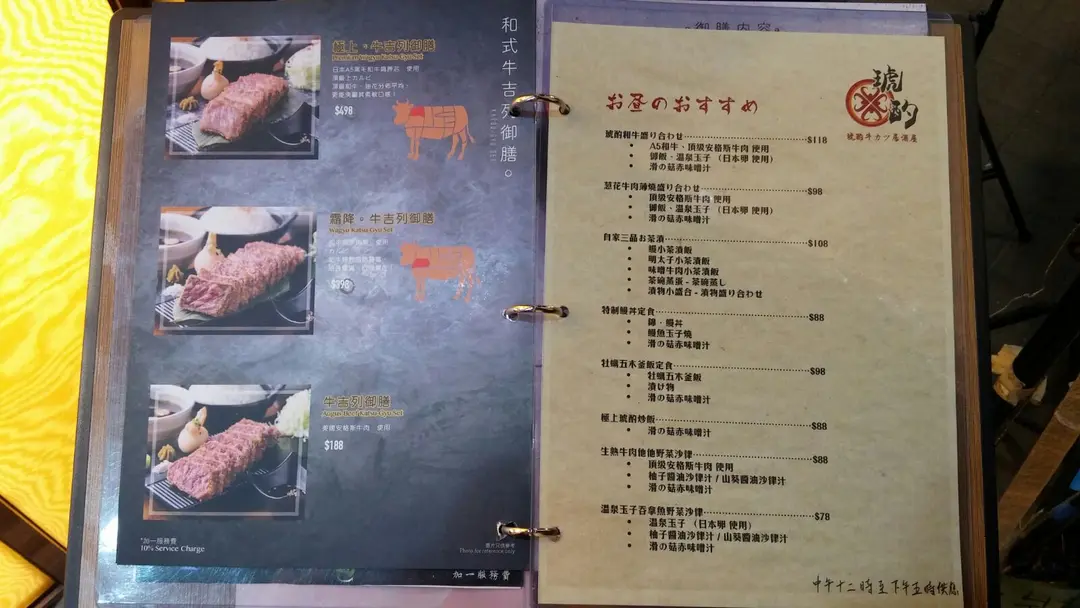 和式牛吉列御膳。
極上。牛吉列御膳
Premium Wagyu Katsu Gyu Set
$498
霜降。牛吉列御膳
Wagyu Katsu Gyu Set
$398
牛吉列御膳
Angus Beef Katsu Gyu Set
美國安格斯牛肉 使用
$188
*加一服務費
10% Service Charge
圖片只供參考
Photo for reference only
加一服務費
御膳内容。
お昼のおすすめ
琥酌
琥酌牛カツ居酒屋
琥酌和牛盛り合わせ $118
• A5和牛、頂級安格斯牛肉 使用
• 御飯、温泉玉子 (日本卵 使用)
• 滑の菇赤味噌汁
葱花牛肉薄燒盛り合わせ $98
• 頂級安格斯牛肉 使用
• 御飯、温泉玉子 (日本卵 使用)
• 滑の菇赤味噌汁
自家三品お茶漬 $108
• 鰻小茶漬飯
• 明太子小茶漬飯
• 味噌牛肉小茶漬飯
• 茶碗蒸蛋 - 茶碗蒸し
• 漬物小盛合 - 漬物盛り合わせ
特制鰻丼定食 $88
• 錦、鰻丼
• 鰻魚玉子燒
• 滑の菇赤味噌汁
牡蠣五木釜飯定食 $98
• 牡蠣五木釜飯
• 漬け物
• 滑の菇赤味噌汁
極上琥酌炒飯 $88
• 滑の菇赤味噌汁
生熟牛肉他他野菜沙律 $88
• 頂級安格斯牛肉 使用
• 柚子醬油沙律汁 / 山葵醬油沙律汁
• 滑の菇赤味噌汁
温泉玉子吞拿魚野菜沙律 $78
• 温泉玉子 (日本卵 使用)
• 柚子醬油沙律汁 / 山葵醬油沙律汁
• 滑の菇赤味噌汁
中午十二時至下午五時供應